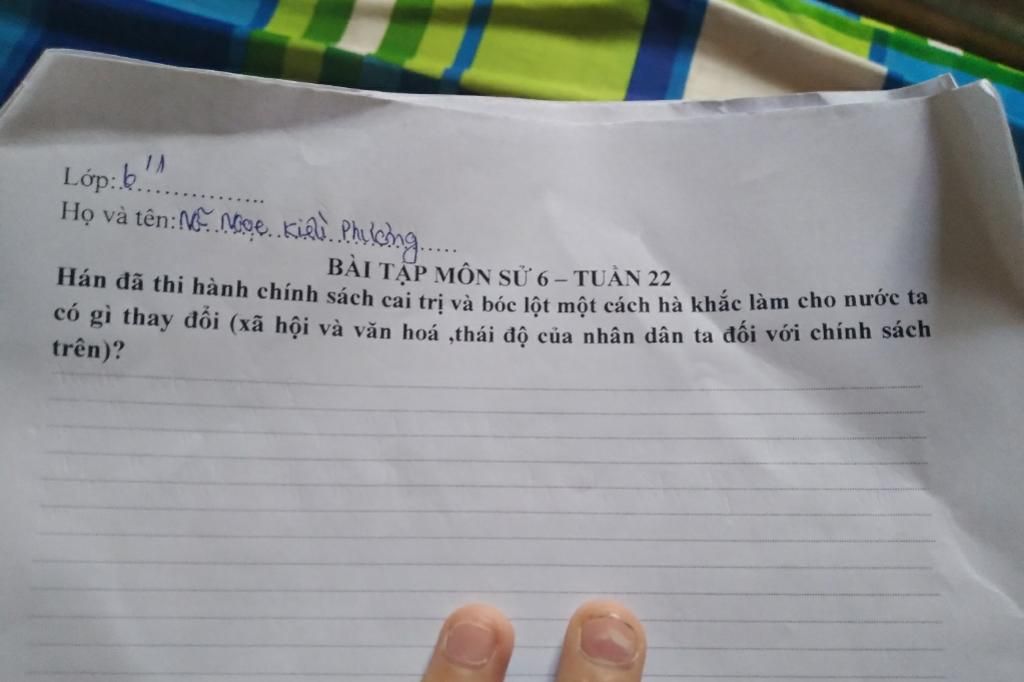 Lớp: 6/11
Họ và tên: Ngọc Kiều Phương
BÀI TẬP MÔN SỬ 6 – TUẦN 22
Hán đã thi hành chính sách cai trị và bóc lột một cách hà khắc làm cho nước ta
có gì thay đổi (xã hội và văn hoá ,thái độ của nhân dân ta đối với chính sách
trên)?